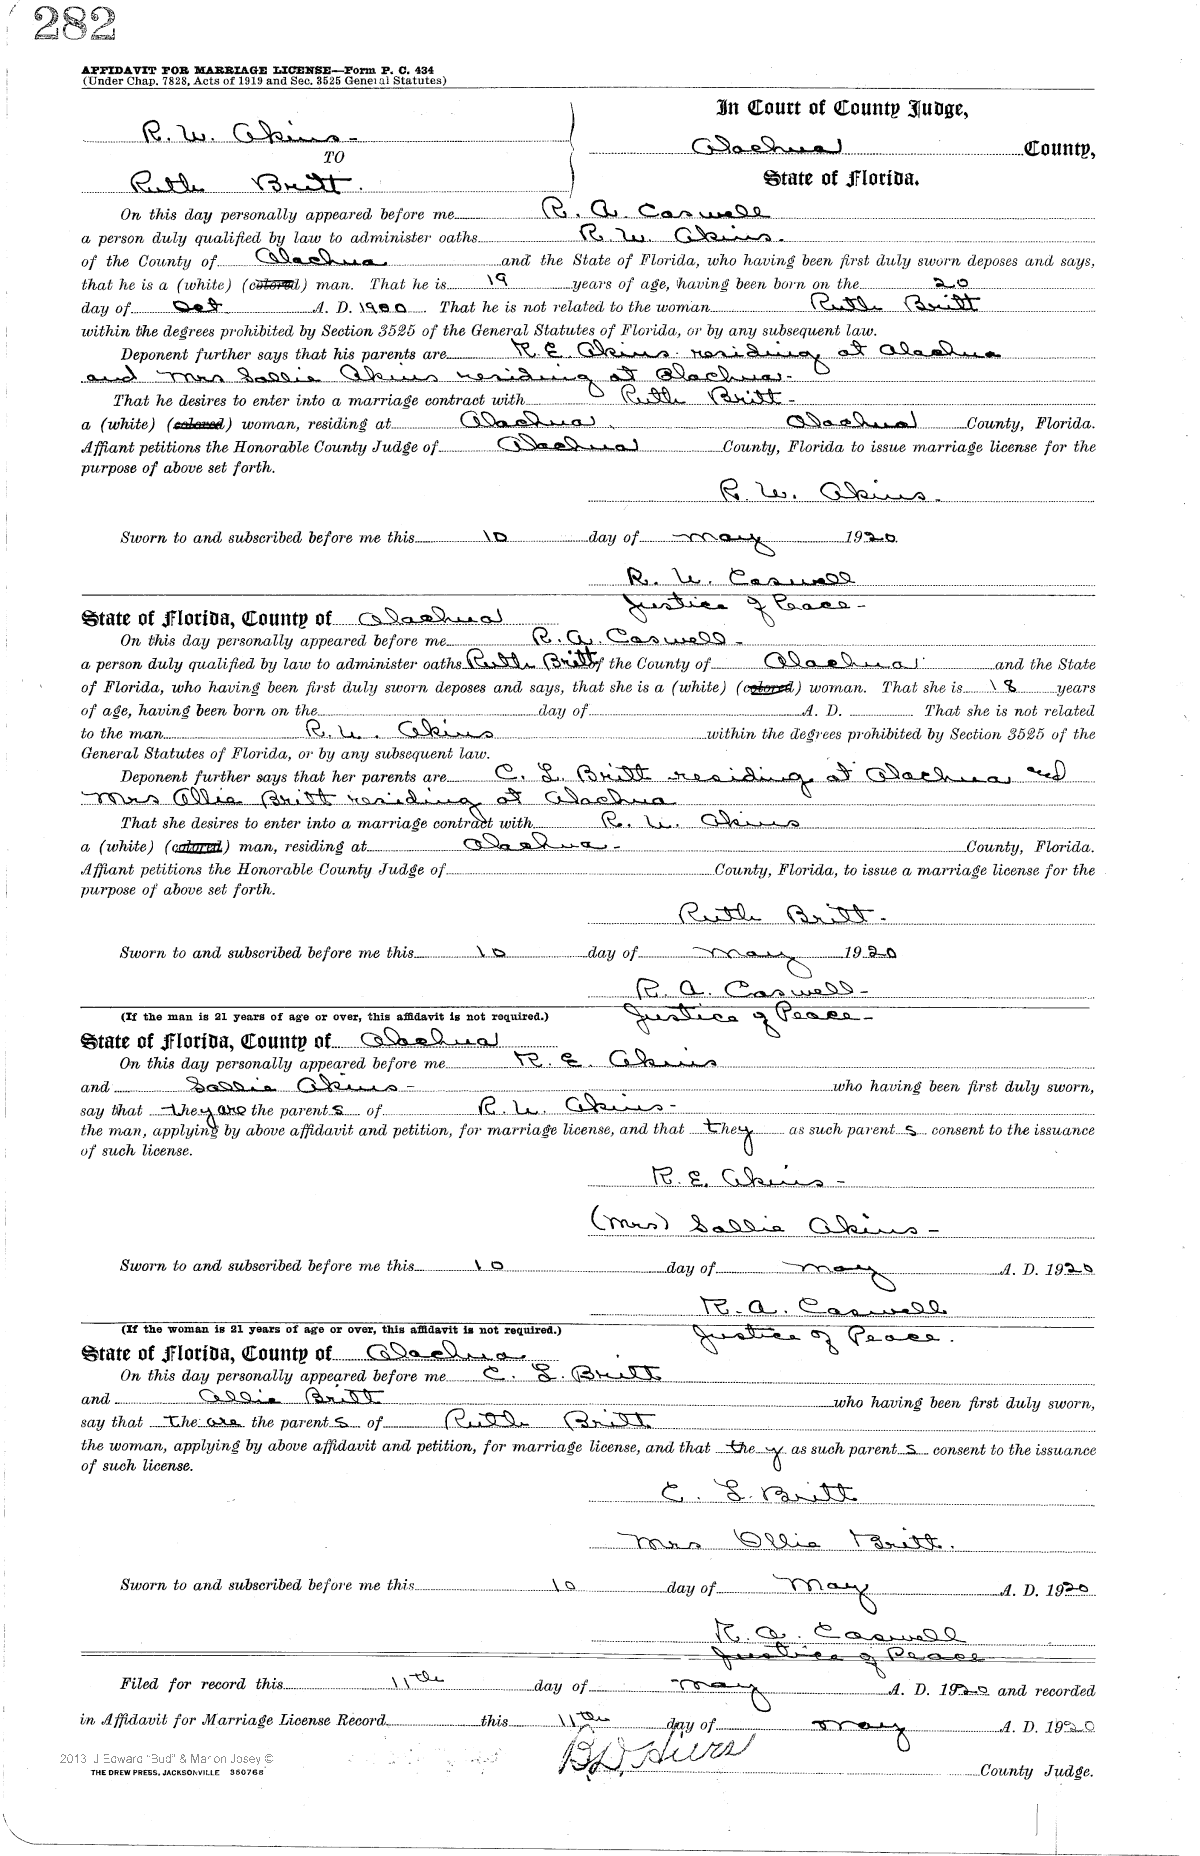 282
AFFIDAVIT FOR MARRIAGE LICENSE—Form P. C. 434
(Under Chap. 7828, Acts of 1919 and Sec. 3525 General Statutes)
R. W. Akins-
TO
Ruth Britt.
In Court of County Judge,
Alachua County,
State of Florida.
On this day personally appeared before me R. A. Caswell
a person duly qualified by law to administer oaths R. W. Akins.
of the County of Alachua and the State of Florida, who having been first duly sworn deposes and says,
that he is a (white) (colored) man. That he is 19 years of age, having been born on the 20
day of Oct A. D. 1900. That he is not related to the woman Ruth Britt
within the degrees prohibited by Section 3525 of the General Statutes of Florida, or by any subsequent law.
Deponent further says that his parents are R. E. Akins residing at Alachua
and Mrs Sallie Akins residing at Alachua-
That he desires to enter into a marriage contract with Ruth Britt-
a (white) (colored) woman, residing at Alachua, Alachua County, Florida.
Affiant petitions the Honorable County Judge of Alachua County, Florida to issue marriage license for the
purpose of above set forth.
R. W. Akins-
Sworn to and subscribed before me this 10 day of May 1920
R. W. Caswell
Justice of Peace-
State of Florida, County of Alachua
On this day personally appeared before me R. A. Caswell-
a person duly qualified by law to administer oaths Ruth Britt of the County of Alachua and the State
of Florida, who having been first duly sworn deposes and says, that she is a (white) (colored) woman. That she is 18 years
of age, having been born on the day of A. D. That she is not related
to the man R. W. Akins within the degrees prohibited by Section 3525 of the
General Statutes of Florida, or by any subsequent law.
Deponent further says that her parents are C. L. Britt residing at Alachua and
Mrs Ollie Britt residing at Alachua
That she desires to enter into a marriage contract with R. W. Akins
a (white) (colored) man, residing at Alachua- County, Florida.
Affiant petitions the Honorable County Judge of County, Florida, to issue a marriage license for the
purpose of above set forth.
Ruth Britt-
Sworn to and subscribed before me this 10 day of May 1920
R. A. Caswell-
Justice of Peace-
(If the man is 21 years of age or over, this affidavit is not required.)
State of Florida, County of Alachua
On this day personally appeared before me R. E. Akins
and Sallie Akins- who having been first duly sworn,
say that they are the parents of R. W. Akins-
the man, applying by above affidavit and petition, for marriage license, and that they as such parents consent to the issuance
of such license.
R. E. Akins-
(Mrs) Sallie Akins-
Sworn to and subscribed before me this 10 day of May A. D. 1920
R. A. Caswell
Justice of Peace.
(If the woman is 21 years of age or over, this affidavit is not required.)
State of Florida, County of Alachua
On this day personally appeared before me C. L. Britt
and Ollie Britt who having been first duly sworn,
say that the are the parents of Ruth Britt
the woman, applying by above affidavit and petition, for marriage license, and that they as such parents consent to the issuance
of such license.
C. L. Britt
Mrs Ollie Britt.
Sworn to and subscribed before me this 10 day of May A. D. 1920
R. A. Caswell
Justice of Peace
Filed for record this 11th day of May A. D. 1920 and recorded
in Affidavit for Marriage License Record this 11th day of May A. D. 1920
B.D. Hiers County Judge.
2013 J Edward "Bud" & Marion Josey ©
THE DREW PRESS, JACKSONVILLE 350768